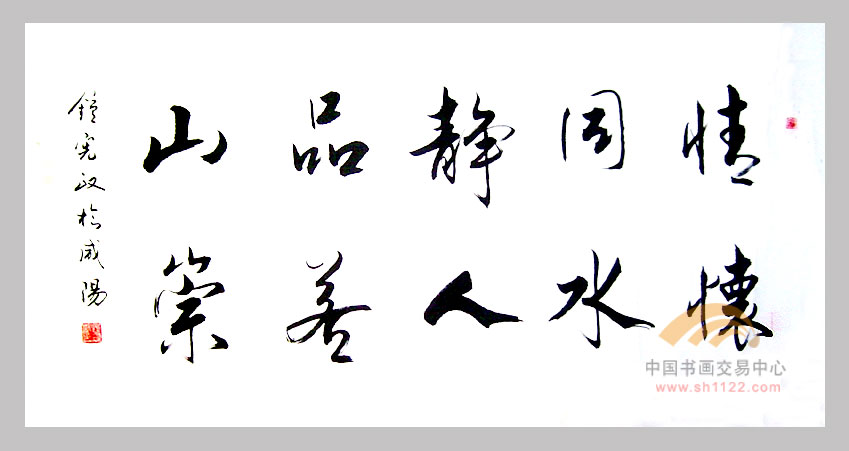 情懷
同水
靜人
品若
山崇
鐘憲政於咸陽
中国书画交易中心
www.sh1122.com